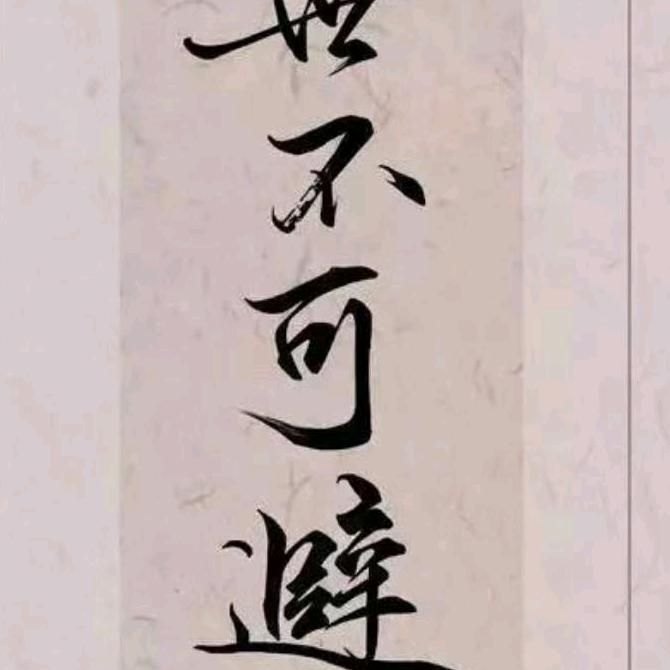 不可避